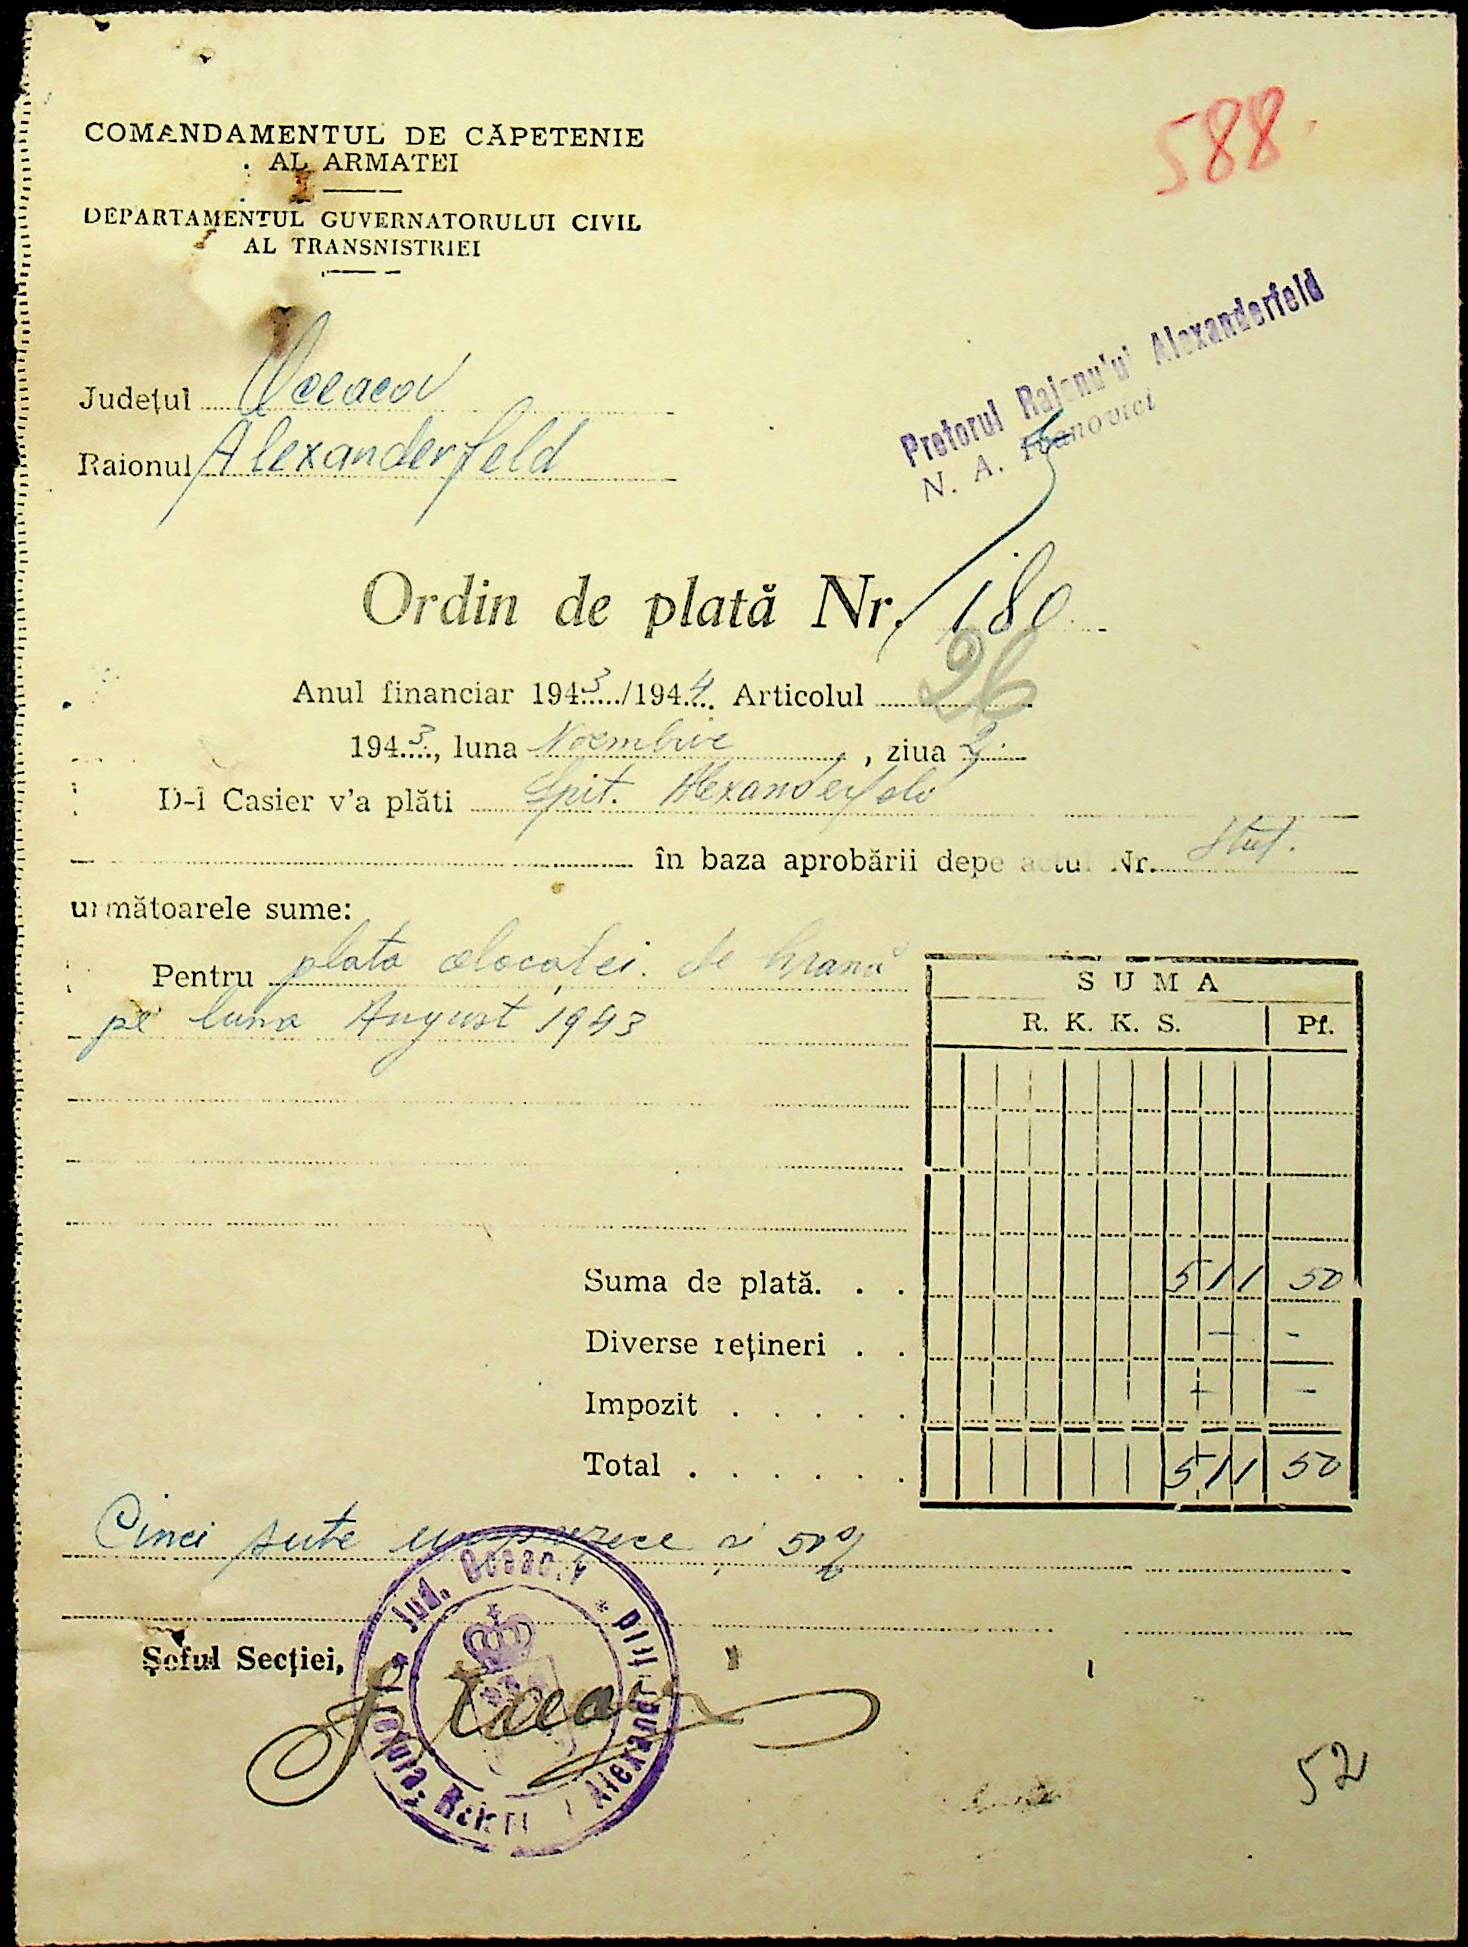 588
COMANDAMENTUL DE CĂPETENIE
AL ARMATEI
DEPARTAMENTUL GUVERNATORULUI CIVIL
AL TRANSNISTRIEI
Pretorul Raionului Alexanderfeld
N. A.
Județul Oceacov
Raionul Alexanderfeld
Ordin de plată Nr. 180
Anul financiar 1943/1944 Articolul 26
1943, luna Noembrie, ziua 2
D-l Casier v'a plăti Spit. Alexanderfeld
în baza aprobării depe actul Nr. Stat.
următoarele sume:
Pentru plata alocației de hrană
pe luna August 1943
SUMA
R. K. K. S. Pf.
Suma de plată. . . 511 50
Diverse rețineri . . - -
Impozit . . . . . - -
Total . . . . . . 511 50
Cinci sute unsprezece și 50%
Șeful Secției,
Jud. Oceacov * Pretura Raion Alexanderfeld *
52